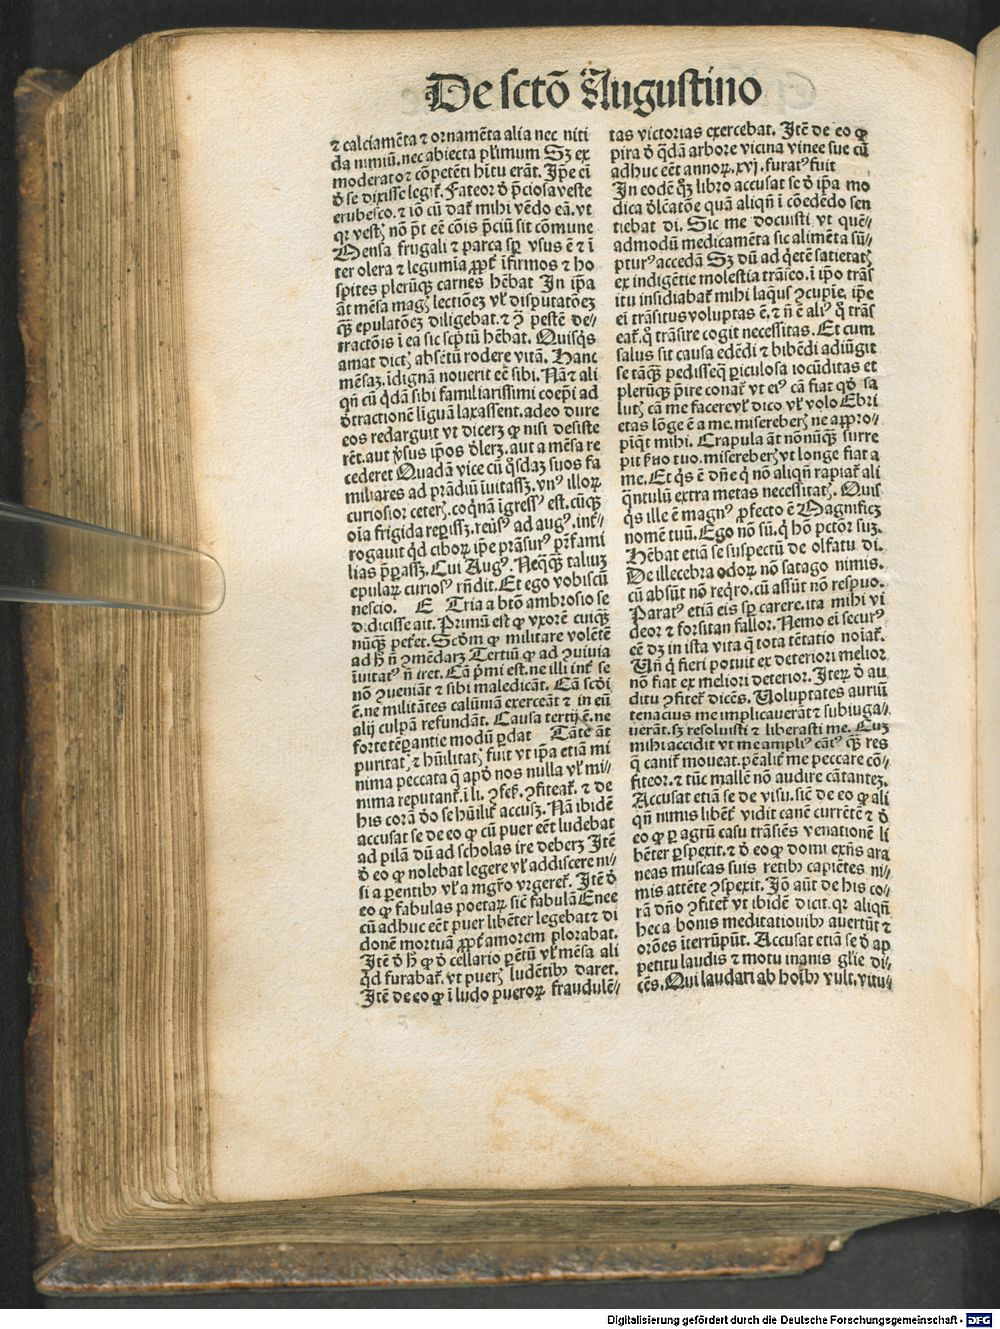 De sctō Augustino
⁊ calciamēta ⁊ ornamēta alia nec niti
da nimiū. nec abiecta plꝛimum Sꝫ ex
moderato ⁊ cōpetēti hītu erāt. Ip̄e eī
ꝺ̄ se dixisse legit᷑. Fateor ꝺ̄ p̄ciosa veste
erubesco. ⁊ iō cū dat᷑ mihi vēdo eā. vt
qꝛ vestꝭ nō p̄t eē cōis p̄ciū sit cōmune
Mensa frugali ⁊ parca sꝑ vsus ē ⁊ ī
ter olera ⁊ legumīa ꝓpt᷑ īfirmos ⁊ ho
spites plerūqꝫ carnes hēbat In ip̄a
āt mēsa magꝭ lectionēꝫ vꝉ disputatōeꝫ
qꝫ̄ epulatōeꝫ diligebat. ⁊ ꝯ̄ pestē de//
tractōis ī ea sic scptū hēbat. Quisqͥs
amat dictꝭ absētū rodere vitā. Hanc
mēsaꝫ. īdignā nouerit eē sibi. Nā ⁊ ali
qn̄ cū qͥdā sibi familiarissimi coep̄i ad
ꝺ̄tractionē līguā laxassent. adeo dure
eos redarguit vt diceꝛꝫ ꝙ nisi desiste
rēt. aut ꝟsus ip̄os ꝺ̄leꝛꝫ. aut a mēsa re
cederet Quadā vice cū qͦsdaꝫ suos fa
miliares ad prādiū īuitassꝫ. vnꝰ illoꝝ
curiosior ceterꝭ. coqͥnā īgressꝰ est. cūqꝫ
oīa frigida reꝑissꝫ. reūsꝰ ad augꝰ. int᷑
rogauit qͥd ciboꝝ ip̄e prāsurꝰ pr̄fami
lias p̄ꝑassꝫ. Cui Augꝰ. Neqͣqꝫ taliuꝫ
epulaꝝ curiosꝰ rn̄dit. Et ego vobiscū
nescio. E Tria a btō ambrosio se
didicisse ait. Primū est ꝙ vxorē cuiqꝫ
nūqꝫ̄ pet᷑et. Scdm ꝙ militare volētē
ad h̄ n̄ ꝯmēdaꝛꝫ Tertiū ꝙ ad ꝯuiuia
īuitatꝰ n̄ iret. Cā pͥmi est. ne illi int᷑ se
nō ꝯueniāt ⁊ sibi maledicāt. Cā scd̓i
ē. ne militātes calūniā exerceāt ⁊ in eū
alij culpā refundāt. Causa tertij ē. ne
forte tēꝑantie modū ꝑdat Tāte āt
puritatꝭ ⁊ hūilitatꝭ fuit vt ip̄a etiā mi
nima peccata q̄ apͩ nos nulla vꝉ mi//
nima reputant᷑. ī li. ꝯfes̄. ꝯfiteat᷑. ⁊ de
his corā ꝺ̄o se hūilit᷑ accusꝫ. Nā ibidē
accusat se de eo ꝙ cū puer eēt ludebat
ad pilā dū ad scholas ire debeꝛꝫ Itē
ꝺ̄ eo ꝙ nolebat legere vꝉ addiscere ni//
si a ꝑentibꝰ vꝉ a mgr̄o vrgeret᷑. Itē ꝺ̄
eo ꝙ fabulas poetaꝝ sic̄ fabulā Enee
cū adhuc eēt puer libēter legebat ⁊ di
donē mortuā ꝓpt᷑ amorem plorabat.
Itē ꝺ̄ h̄ ꝙ ꝺ̄ cellario ꝑētū vꝉ mēsa ali
qͥd furabat᷑. vt puerꝭ ludētibꝰ daret.
Itē de eo ꝙ ī ludo pueroꝝ fraudulē//
tas victorias exercebat. Itē de eo ꝙ
pira ꝺ̄ qͣdā arbore vicina vinee sue cū
adhuc eēt annoꝝ. xvj. furatꝰ fuit
In eodē qꝫ libro accusat se ꝺ̄ ip̄a mo
dica ꝺ̄lcātōe quā aliqn̄ ī cōedēdo sen
tiebat di. Sic me docuisti vt quē//
admodū medicamēta sic alimēta sū//
pturꝰ accedā Sꝫ dū ad qͥetē satietatꝭ
ex indigētie molestia trāseo. ī ip̄o trās
itu insidiabat᷑ mihi laqus ꝯcupīe. ip̄e
eī trāsitus voluptas ē. ⁊ n̄ ē aliꝰ qͦ trās
eat᷑. qͦ trāsire cogit necessitas. Et cum
salus sit causa edēdi ⁊ bibēdi adiūgit
se tāqꝫ̄ pedisseq̄ ꝑiculosa iocūditas et
plerūqꝫ p̄ire conat᷑ vt eiꝰ cā fiat qͦꝺ̄ sa
lutꝭ cā me facere vꝉ dico vꝉ volo Ebri
etas lōge ē a me. misereberꝭ ne appro//
pīqt mihi. Crapula āt nōnūqꝫ̄ surre
pit ẜuo tuo. misereberꝭ vt longe fiat a
me. Et qͥs ē dn̄e qͥ nō aliqn̄ rapiat᷑ ali
qͣntulū extra metas necessitatꝭ. Quis
qͥs ille ē magnꝰ ꝓfecto ē Magnificꝫ
nomē tuū. Ego nō sū. qͥ hō pctōr suꝫ.
Hēbat etiā se suspectū de olfatu di.
De illecebra odoꝝ nō satago nimis.
cū absūt nō reqͥro. cū assūt nō respuo.
Paratꝰ etiā eis sꝑ carere. ita mihi vi
deor ⁊ forsitan fallor. Nemo eī securꝰ
eē dꝫ in ista vita q̄ tota tētatio noīat᷑.
Vn̄ qͥ fieri potuit ex deteriori melior
nō fiat ex meliori deterior. Iteꝝ ꝺ̄ au
ditu ꝯfitet᷑ dicēs. Voluptates auriū
tenacius me implicauerāt ⁊ subiuga//
uerāt. sꝫ resoluisti ⁊ liberasti me. Cuꝫ
mihi accidit vt me ampliꝰ cātꝰ qꝫ̄ res
q̄ canit᷑ moueat. pēalit᷑ me peccare cō//
fiteor. ⁊ tūc mallē nō audire cātanteꝫ.
Accusat etiā se de visu. sic̄ de eo ꝙ ali
qn̄ nimis libēt᷑ vidit canē currētē ⁊ ꝺ̄
eo ꝙ ꝑ agrū casu trāsiēs venationē li
bēter ꝑspexit. ⁊ ꝺ̄ eo ꝙ domi exn̄s ara
neas muscas suis retibꝰ capiētes ni//
mis attēte ꝯspexit. Iō aūt de his co//
rā dn̄o ꝯfitet᷑ vt ibidē dicit. qꝛ aliqn̄
hec a bonis meditatiōibꝰ auertūt ⁊
orōes īterrūpūt. Accusat etiā se ꝺ̄ ap
petitu laudis ⁊ motu inanis gl̄ie di//
cēs. Qui laudari ab hoībꝰ vult. vitu//
Digitalisierung gefördert durch die Deutsche Forschungsgemeinschaft - DFG